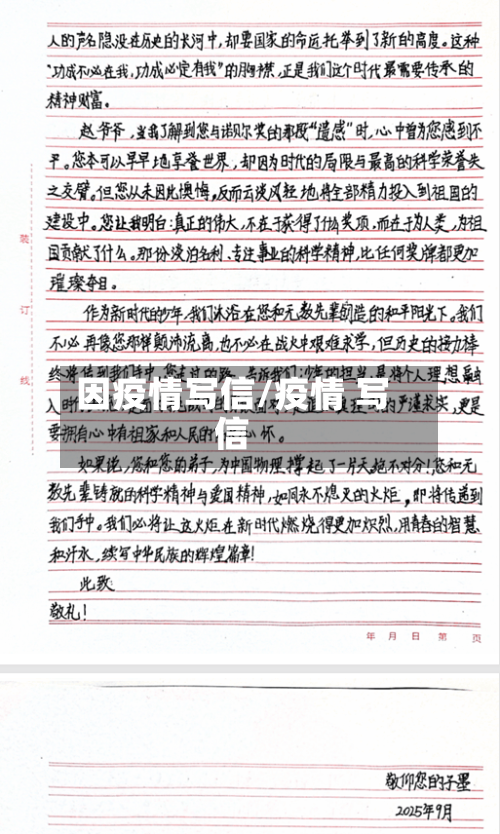 人的声名隐没在历史的长河中，却要国家的命运托举到了新的高度。这种
“功成不必在我，功成必定有我”的胸襟，正是我们这个时代最需要传承的
精神财富。
赵爷爷，当我了解到您与诺贝尔奖的那段“遗憾”时，心中曾为您感到不
平。您本可以早早地享誉世界，却因为时代的局限与最高的科学荣誉失
之交臂。但您从未因此懊悔，反而云淡风轻地将全部精力投入到祖国的
建设中。您让我明白：真正的伟大，不在于获得了什么奖项，而在于为人类，为祖
国贡献了什么。那份淡泊名利、专注事业的科学精神，比任何奖牌都更加
璀璨夺目。
作为新时代的少年，我们沐浴在您和无数先辈创造的和平阳光下。我们
不必再像您那样颠沛流离，也不必在战火中艰难求学，但历史的接力棒
终将传到我们手中。您走过的路，告诉我们：少年的担当，是将个人理想融
入时
的严谨求实，更是
要拥有心中有祖家和人民的
怀。
因疫情写信/疫情 写
信
如果说，您和您的弟子，为中国物理撑起了一片天绝不对分！您和无
数先辈铸就的科学精神与爱国精神，如同永不熄灭的火炬，即将传递到
我们手中。我们必将让这火炬在新时代燃烧得更加炽烈，用青春的智慧
和汗水，续写中华民族的辉煌篇章！
此致
敬礼！
年 月 日 第 页
装
订
线
敬仰您的子墨
2025年9月